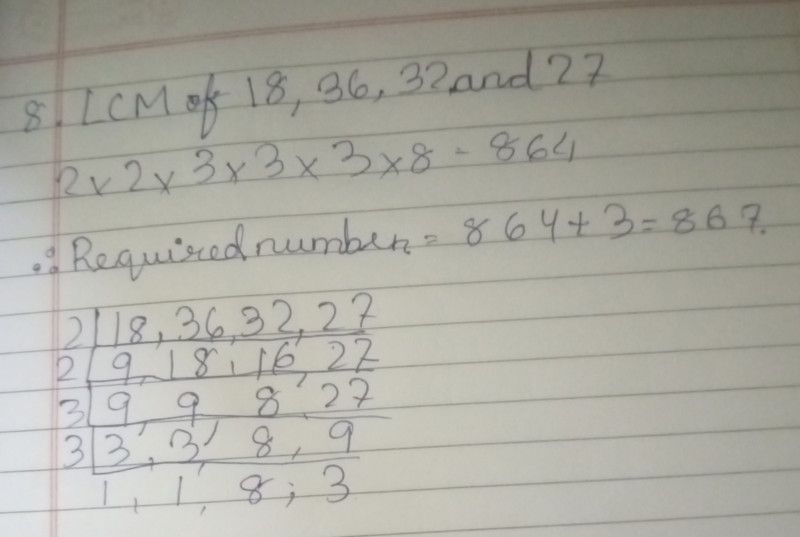 8. LCM of 18, 36, 32 and 27
2 × 2 × 3 × 3 × 3 × 8 = 864
∴ Required number = 864 + 3 = 867.
2 | 18, 36, 32, 27
2 | 9, 18, 16, 27
3 | 9, 9, 8, 27
3 | 3, 3, 8, 9
1, 1, 8, 3